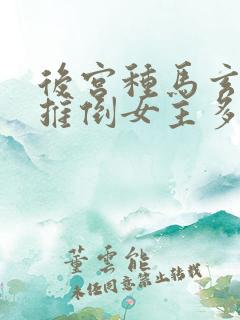 後宮種馬玄
推倒女主多
董雲能
未經同意禁止轉載